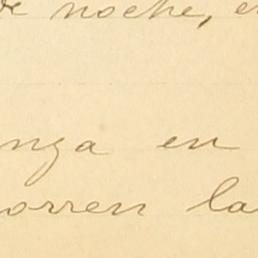 de noche, e
nga en
orren la